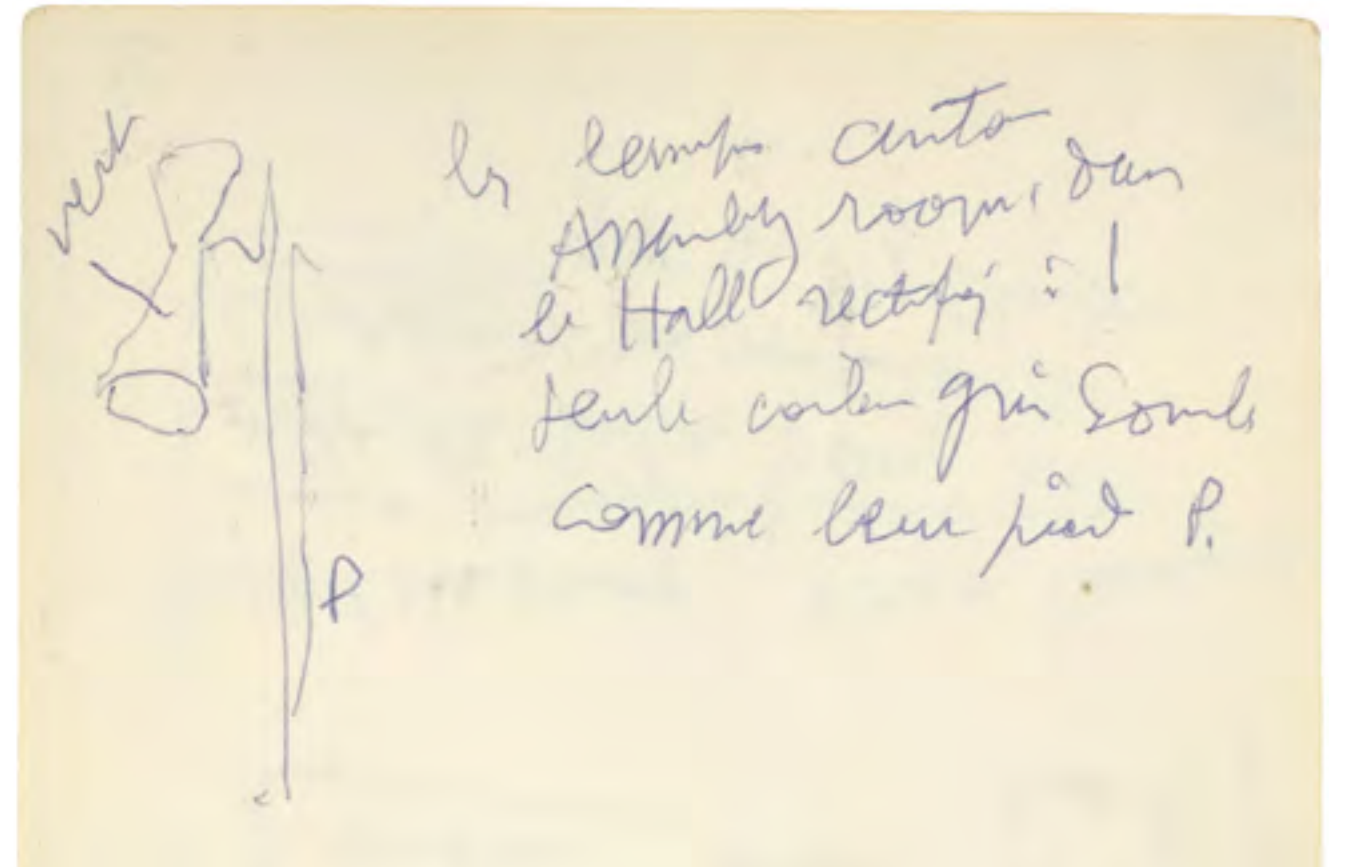 vert
les lamps auto
Assembly room, dans
le Hall rectifié : !
seule couleur gris Sombre
comme leur pied P.
P